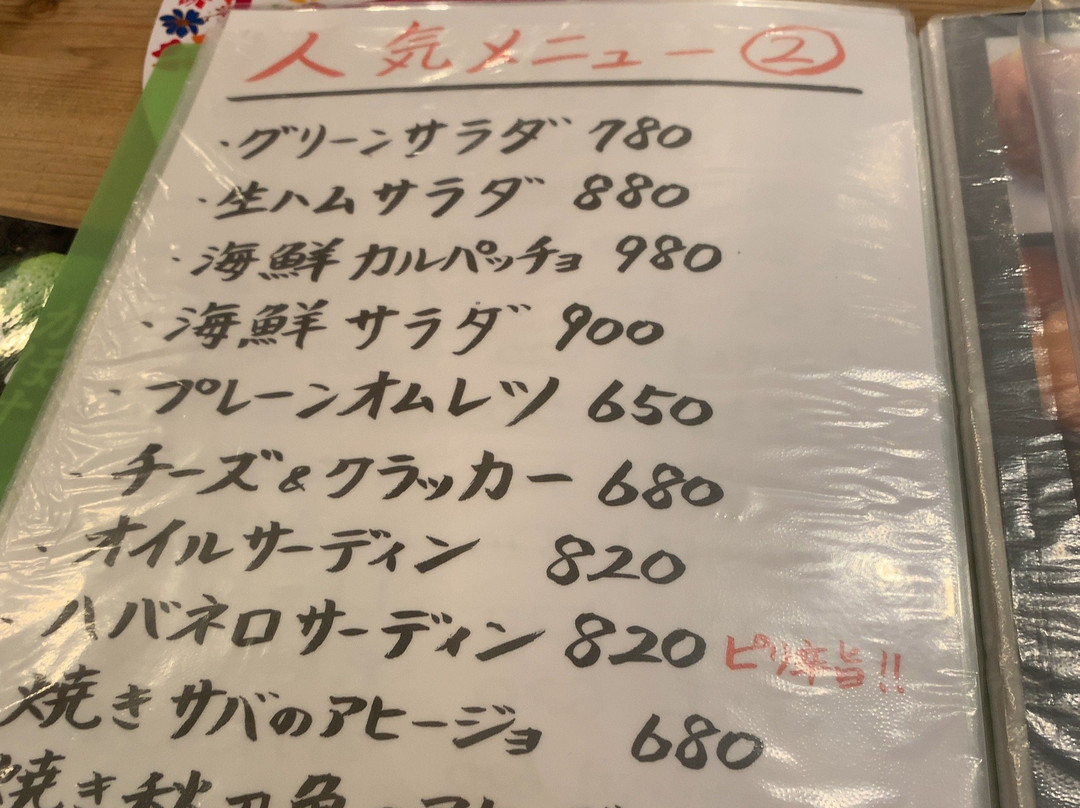 人気メニュー②
・グリーンサラダ 780
・生ハムサラダ 880
・海鮮カルパッチョ 980
・海鮮サラダ 900
・プレーンオムレツ 650
・チーズ&クラッカー 680
・オイルサーディン 820
・ハバネロサーディン 820 ピリ辛旨!!
焼きサバのアヒージョ 680
焼き秋刀魚